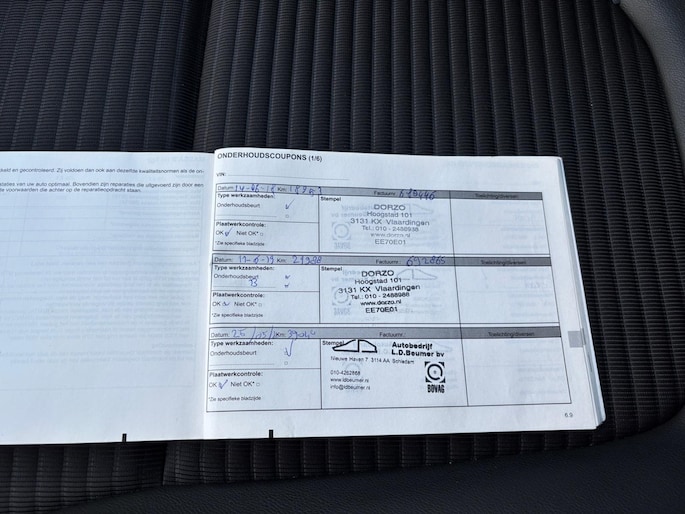 keld en gecontroleerd. Zij voldoen dan ook aan dezelfde kwaliteitsnormen als de on-
staties van uw auto optimaal. Bovendien zijn reparaties die uitgevoerd zijn door een
voorwaarden die achter op de reparatieopdracht staan.
ONDERHOUDSCOUPONS (1/6)
VIN:
Datum: Km: Factuurnr.: Toelichting/diversen
Type werkzaamheden: Stempel
Onderhoudsbeurt
Plaatwerkcontrole:
OK Niet OK*
*Zie specifieke bladzijde
DORZO
Hoogstad 101
3131 KX Vlaardingen
Tel.: 010 - 2488988
www.dorzo.nl
EE70E01
Datum: Km: Factuurnr.: 692865 Toelichting/diversen
Type werkzaamheden: Stempel
Onderhoudsbeurt
B
Plaatwerkcontrole:
OK Niet OK*
*Zie specifieke bladzijde
DORZO
Hoogstad 101
3131 KX Vlaardingen
Tel.: 010 - 2488988
www.dorzo.nl
EE70E01
Datum: 25 Km: Factuurnr.: Toelichting/diversen
Type werkzaamheden: Stempel
Onderhoudsbeurt
Plaatwerkcontrole:
OK Niet OK*
*Zie specifieke bladzijde
Autobedrijf
L.D.Beumer bv
Nieuwe Haven 7 3114 AA Schiedam
010-4262868
www.ldbeumer.nl
info@ldbeumer.nl
BOVAG
6.9